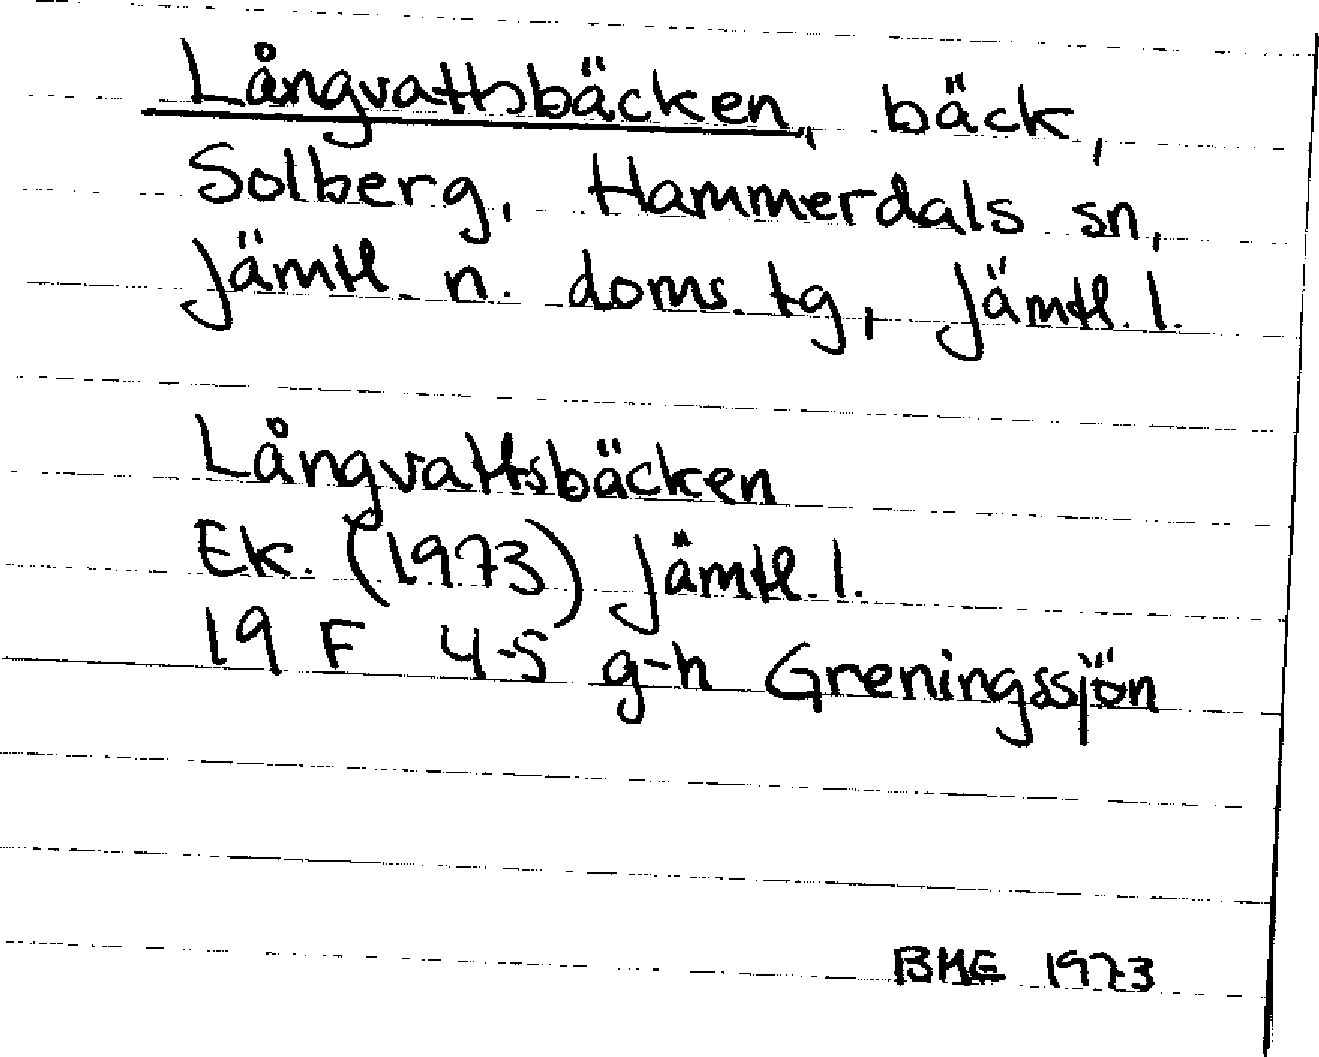 Långvattsbäcken, bäck,
Solberg, Hammerdals sn,
Jämtl. n. doms. tg, Jämtl. l.
Långvattsbäcken
Ek. (1973) Jämtl. l.
19 F 4-5 g-h Greningssjön
BME 1973